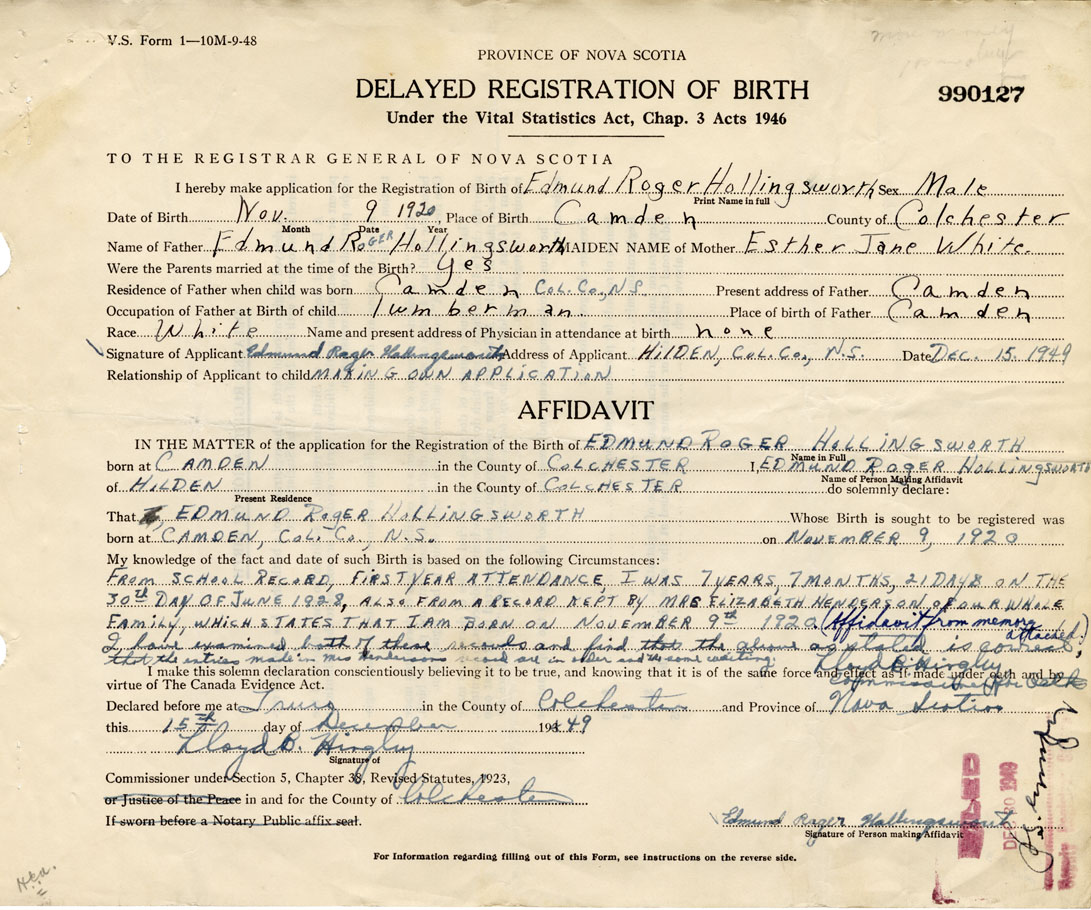 V.S. Form 1—10M-9-48
PROVINCE OF NOVA SCOTIA
DELAYED REGISTRATION OF BIRTH
990127
Under the Vital Statistics Act, Chap. 3 Acts 1946
TO THE REGISTRAR GENERAL OF NOVA SCOTIA
I hereby make application for the Registration of Birth of Edmund Roger Hollingsworth Sex Male
Print Name in full
Date of Birth Nov. 9 1920, Place of Birth Camden County of Colchester
Month Date Year
Name of Father Edmund ROGER Hollingsworth MAIDEN NAME of Mother Esther Jane White.
Were the Parents married at the time of the Birth? Yes
Residence of Father when child was born Camden COL. CO., N.S Present address of Father Camden
Occupation of Father at Birth of child lumberman. Place of birth of Father Camden
Race White Name and present address of Physician in attendance at birth none
Signature of Applicant Edmund Roger Hollingsworth Address of Applicant HILDEN, COL. CO., N.S. Date DEC. 15. 1949
Relationship of Applicant to child MAKING OWN APPLICATION
AFFIDAVIT
IN THE MATTER of the application for the Registration of the Birth of EDMUND ROGER HOLLINGSWORTH
Name in Full
born at CAMDEN in the County of COLCHESTER I, EDMUND ROGER HOLLINGSWORTH
Name of Person Making Affidavit
of HILDEN in the County of COLCHESTER do solemnly declare:
Present Residence
That I, EDMUND ROGER HOLLINGSWORTH Whose Birth is sought to be registered was
born at CAMDEN, COL. CO., N.S. on NOVEMBER 9, 1920
My knowledge of the fact and date of such Birth is based on the following Circumstances:
FROM SCHOOL RECORD, FIRST YEAR ATTENDANCE, I WAS 7 YEARS, 7 MONTHS, 21 DAYS ON THE
30th DAY OF JUNE 1928, ALSO FROM A RECORD KEPT BY MRS ELIZABETH HENDERSON, OF OUR WHOLE
FAMILY, WHICH STATES THAT I AM BORN ON NOVEMBER 9th 1920 (Affidavit from memory
attached)
I have examined both of these records and find that the above as stated is correct,
that the entries made in Mrs Hendersons record are in order and the same writing. Lloyd B. Hingley
Commissioner for Oaths
I make this solemn declaration conscientiously believing it to be true, and knowing that it is of the same force and effect as if made under oath and by
virtue of The Canada Evidence Act.
Declared before me at Truro in the County of Colchester and Province of Nova Scotia
this 15th day of December 19349
Lloyd B. Hingley
Signature of
Commissioner under Section 5, Chapter 38, Revised Statutes, 1923,
or Justice of the Peace in and for the County of Colchester
If sworn before a Notary Public affix seal.
Edmund Roger Hollingsworth
Signature of Person making Affidavit
DEC 30 1949
For Information regarding filling out of this Form, see instructions on the reverse side.